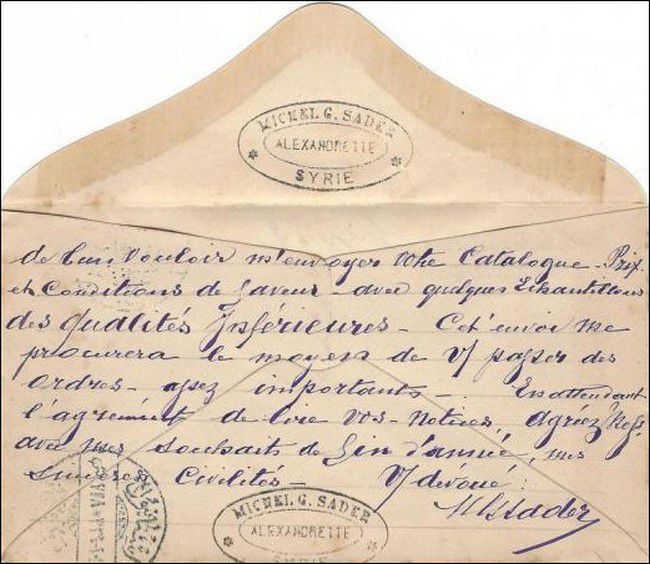 MICHEL G. SADER
ALEXANDRETTE
SYRIE
de bien vouloir m'envoyer votre Catalogue - Prix
et Conditions de faveur - avec quelques Echantillons
des qualités Inférieures - Cet envoi me
procurera le moyen de V/ passer des
ordres - assez importants - . En attendant
l'agrément de lire vos - Notices, agréez
avec mes souhaits de fin d'année, mes
Sincères Civilités - V/ dévoué
MGSader
MICHEL G. SADER
ALEXANDRETTE
SYRIE